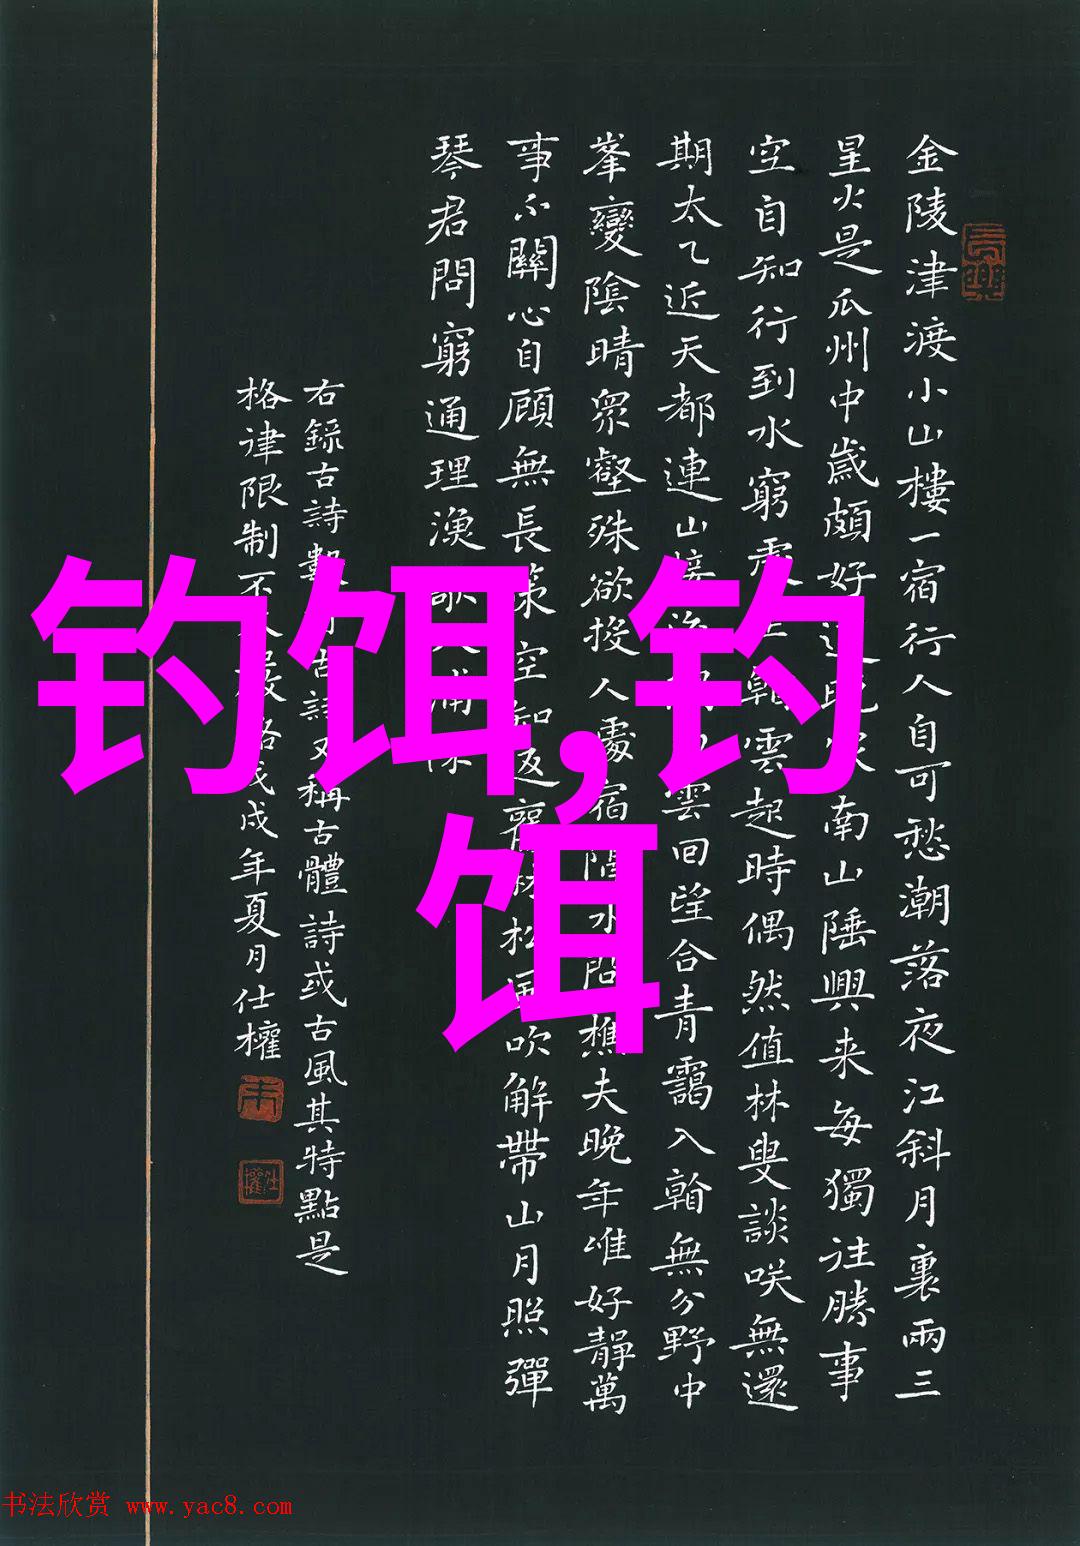 金陵津渡小山樓一宿行人自可愁潮落夜江斜月裏兩三
星火是瓜州中歲頗好道晚家南山陲興来每獨往勝事
空自知行到水窮處坐看雲起時偶然值林叟談咲無還
期太乙近天都連山接海隅白雲回望合青靄入看無分野中
峯變陰晴衆壑殊欲投人處宿隔水問樵夫晚年唯好靜萬
事不關心自顧無長策空知返舊林松風吹解帶山月照彈
琴君問窮通理漁歌入浦深
右錄古詩數首古詩又稱古體詩或古風其特點是
格律限制不太嚴格戊戌年夏月仕權
钓饵,钓
饵
书法欣赏 www.yac8.com